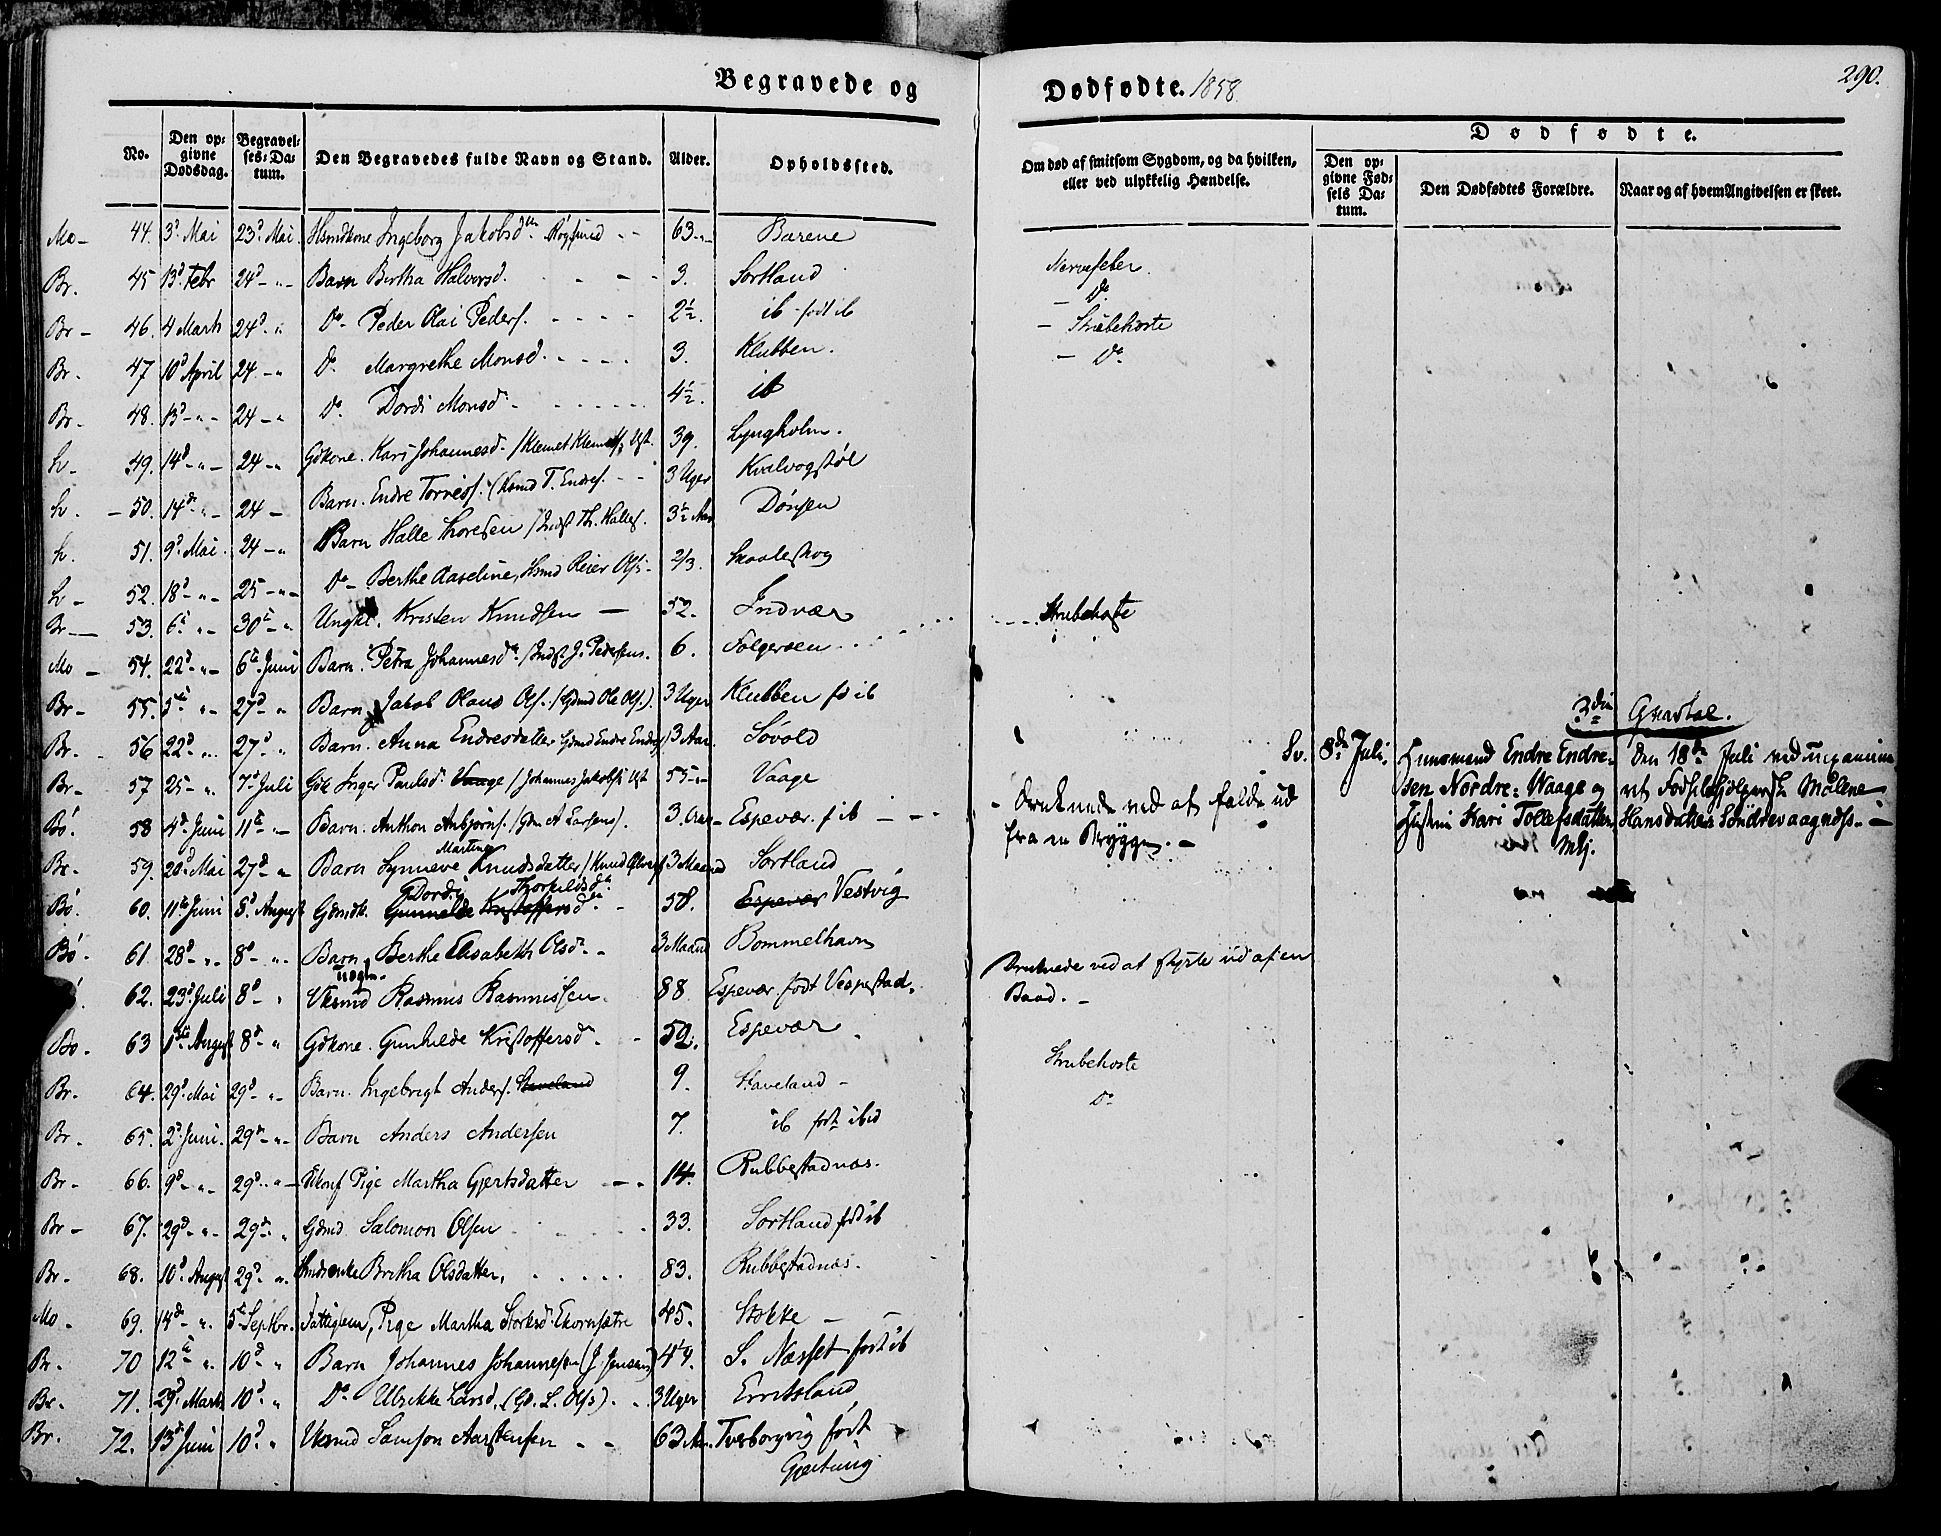 Begravede og Dødfødte. 1858. 290.
No. Den opgivne Dødsdag. Begravelses-Datum. Den Begravedes fulde Navn og Stand. Alder. Opholdssted. Om død af smitsom Sygdom, og da hvilken, eller ved ulykkelig Hændelse. Dødfødte. Den opgivne Fødsels Datum. Den Dødfødtes Forældre. Naar og af hvem Angivelsen er skeet.
Mo- 44. 3d Mai 23d Mai Hsmdkone Ingeborg Jakobsdtr 63 Barene
Br. 45 13d Febr 24d - " - Barn Bertha Halvorsd. 3. Sortland Nervefeber.
Br- 46. 4 Marts 24d " Do- Peder Olai Peders. 2½. ib født ib - Do
Br. 47 10d April 24 - " Do. Margrethe Monsd. 3. Klubben. - Strubehoste
Br- 48. 13d - " - 24 - " Do. Dordi Monsd. 4½. ib - Do
h- 49. 14d - " - 24 - " Gdkone. Kari Johannesd. / Klemet 39. Lyngholm.
h. - 50. 14de " - 24 - Barn. Endre Torries. (Hsmd T. Endres. 3 Uger Kvalvogstøl
h. 51. 9d Mai. 24 - " Barn Halle Thoresen / Indst Th. Halles. 3½ Aar Dørsen
h- 52. 18d - " - 25 - " - Do- Berthe Aaseline, Hsmd Reier Ols. 2/3. Skaaleskog
Br- 53. 6te " - 30te - " Ungkl. Kristen Knudsen - 52. Indvær
Mo- 54. 22d - " - 6te Juni Barn. Petra Johannesd / Indst. J. Pedersens. 6. Folgerøen Strubehoste
Br- 55. 5te " - 27d - " Barn Jakob Olaus Ols. / (Gdmd Ole Ols.). 3 Uger Klubben fø ib
Br- 56 22d " 27d " Barn. Anna Endresdatter Gdmd Endre Endres 13 Aar. Søvold
Br- 57 25 - " 7d Juli Gdk Inger Paulsd. Vaage / Johannes Jakobs 55 - " - Vaage
Bö. 58 4de Juni 11te " - Barn. Anthon Anbjørns. (Gdm A Larsens). 3. Aar - Espevær. f ib - Druknede ved at falde ud
fra en Brygge. -
Br- 59. 20d Mai 27d - " Barn Synneve Martine Knudsdatter / Knud 3 Maaned Sortland
Bö. 60. 11te Juni 8d August Gdmdk. Dordi Thorkildsdr Gunnelde Kristoffersd. 58. Espevær Vestvig
Bö- 61 28d - " 8d - " Barn Berthe Elisabeth Olsd. 3 Maaned Bommelhavn
62. 23d Juli 8d - " Ukmd Rasmus Rasmussen. 88 Espevær. født Vespestad. Druknede ved at styrte ud af en
Baad. -
Bo- 63 1ste August 8de " Gdkone. Gunhilde Kristoffersd. 52. Espevær
Br. 64. 29d Mai 29d - " - Barn. Ingebrigt Anders. Staveland 9. Staveland - Strubehoste
Br. 65. 2d Juni. 29de - " - Barn Anders Andersen 7. ib født ibid Do
Br- 66. 9d - " - 29d - " - Ukonf Pige Martha Gjertsdatter 14. Rubbestadnæs.
Br- 67. 29d - " - 29de - " Gdmd Salomon Olsen 33. Sortland fød ib
Br. 68. 10d August 29d - " Hmdsenke Bretha Olsdatter, 83. Rubbestadnæs.
Mo. 69. 14de - " 5te Septbr. Fattiglem, Pige Martha Storksd. Ekornsætre 45. Stokke -
Br. 70 12te - " 10d - " Barn Johannes Johannessen (J. Jensens) 4¼. S. Næsset født ib
Br. 71. 29d Marts 10d - " Do. Ulrikke Larsd. (Gd. L. Ols). 3 Uger Emitsland
Br. 72. 13de Juni 10d - " Ukmd Samson Aarstensen 63 Aar. Tverborgvig født
Gjeitung
3die Qvartal.
Sv. 8de Juli. Huusmand Endre Endre-
sen Nordre-Waage og
Hustru Kari Tollefsdatter
Den 18de Juli ved uexamine-
ret Fødselshjelperske Malene
Hansdatter Söndrevaagnæs. -